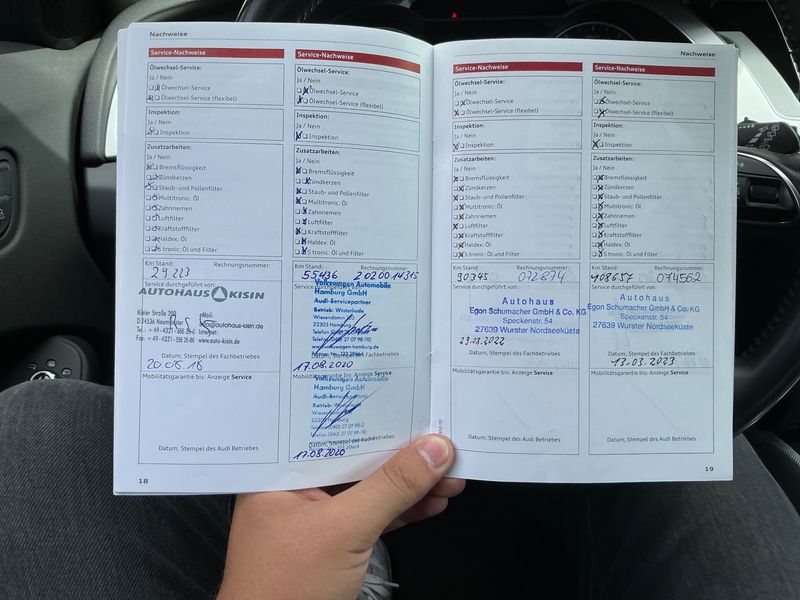 Nachweise
Service-Nachweise
Ölwechsel-Service:
Ja / Nein
Ölwechsel-Service
Ölwechsel-Service (flexibel)
Inspektion:
Ja / Nein
Inspektion
Zusatzarbeiten:
Ja / Nein
Bremsflüssigkeit
Zündkerzen
Staub- und Pollenfilter
Multitronic: Öl
Zahnriemen
Luftfilter
Kraftstofffilter
Haldex: Öl
S tronic: Öl und Filter
Km Stand: Rechnungsnummer:
29.223
Service durchgeführt von:
AUTOHAUS KISIN
Kieler Straße 200 eMail:
D 24536 Neumünster info@autohaus-kisin.de
Tel.: + 49 - 4321 - 566 26-0 Internet:
Fax: + 49 - 4321 - 556 26-46 www.auto-kisin.de
Datum, Stempel des Fachbetriebes
20.06.16
Mobilitätsgarantie bis: Anzeige Service
Datum, Stempel des Audi Betriebes
18
Service-Nachweise
Ölwechsel-Service:
Ja / Nein
Ölwechsel-Service
Ölwechsel-Service (flexibel)
Inspektion:
Ja / Nein
Inspektion
Zusatzarbeiten:
Ja / Nein
Bremsflüssigkeit
Zündkerzen
Staub- und Pollenfilter
Multitronic: Öl
Zahnriemen
Luftfilter
Kraftstofffilter
Haldex: Öl
S tronic: Öl und Filter
Km Stand: Rechnungsnummer:
55436 20200 14315
Service durchgeführt von:
Volkswagen Automobile
Hamburg GmbH
Audi-Servicepartner
Betrieb: Winterhude
Wiesendamm
22303 Hamburg
Datum, Stempel des Fachbetriebes
17.08.2020
Mobilitätsgarantie bis: Anzeige Service
Volkswagen Automobile
Hamburg GmbH
Audi-Servicepartner
Betrieb: Winterhude
Datum, Stempel des Audi Betriebes
17.08.2020
Nachweise
Service-Nachweise
Ölwechsel-Service:
Ja / Nein
Ölwechsel-Service
Ölwechsel-Service (flexibel)
Inspektion:
Ja / Nein
Inspektion
Zusatzarbeiten:
Ja / Nein
Bremsflüssigkeit
Zündkerzen
Staub- und Pollenfilter
Multitronic: Öl
Zahnriemen
Luftfilter
Kraftstofffilter
Haldex: Öl
S tronic: Öl und Filter
Km Stand: Rechnungsnummer:
90345 072874
Service durchgeführt von:
Autohaus
Egon Schumacher GmbH & Co. KG
Speckenstr. 54
27639 Wurster Nordseeküste
Datum, Stempel des Fachbetriebes
Mobilitätsgarantie bis: Anzeige Service
Datum, Stempel des Audi Betriebes
Service-Nachweise
Ölwechsel-Service:
Ja / Nein
Ölwechsel-Service
Ölwechsel-Service (flexibel)
Inspektion:
Ja / Nein
Inspektion
Zusatzarbeiten:
Ja / Nein
Bremsflüssigkeit
Zündkerzen
Staub- und Pollenfilter
Multitronic: Öl
Zahnriemen
Luftfilter
Kraftstofffilter
Haldex: Öl
S tronic: Öl und Filter
Km Stand: Rechnungsnummer:
108657 074562
Service durchgeführt von:
Autohaus
Egon Schumacher GmbH & Co. KG
Speckenstr. 54
27639 Wurster Nordseeküste
Datum, Stempel des Fachbetriebes
13.03.2023
Mobilitätsgarantie bis: Anzeige Service
Datum, Stempel des Audi Betriebes
19